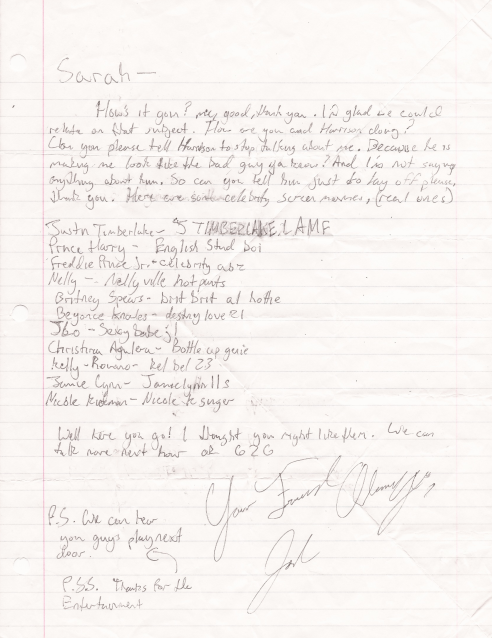 Sarah —
How's it goin? me, good, thank you. I'm glad we could
relate on that subject. How are you and Harrison doing?
Can you please tell Harrison to stop talking about me. Because he is
making me look like the bad guy ya know? And I'm not saying
anything about him. So can you tell him just to lay off please,
thank you. Here are some celebrity screen names, (real ones)
Justin Timberlake - J TIMBERLAKE LAME
Prince Harry - English Stud boi
Freddie Prince Jr. - celebrity
Nelly - Nellyville hot pants
Britney Spears - brit brit al hottie
Beyonce Knowles - destiny love 21
J Lo - Sexy babe jl
Christina Aguilera - Bottle up genie
Kelly - Romano - kel bel 23
Jamie Lynn - Jamielynn 11s
Nicole Kidman - Nicole k singer
Well here you go! I thought you might like them. We can
talk more next hour or G2G
Your Friend Always,
Josh
P.S. We can hear
you guys play next
door.
P.S.S. Thanks for the
Entertainment